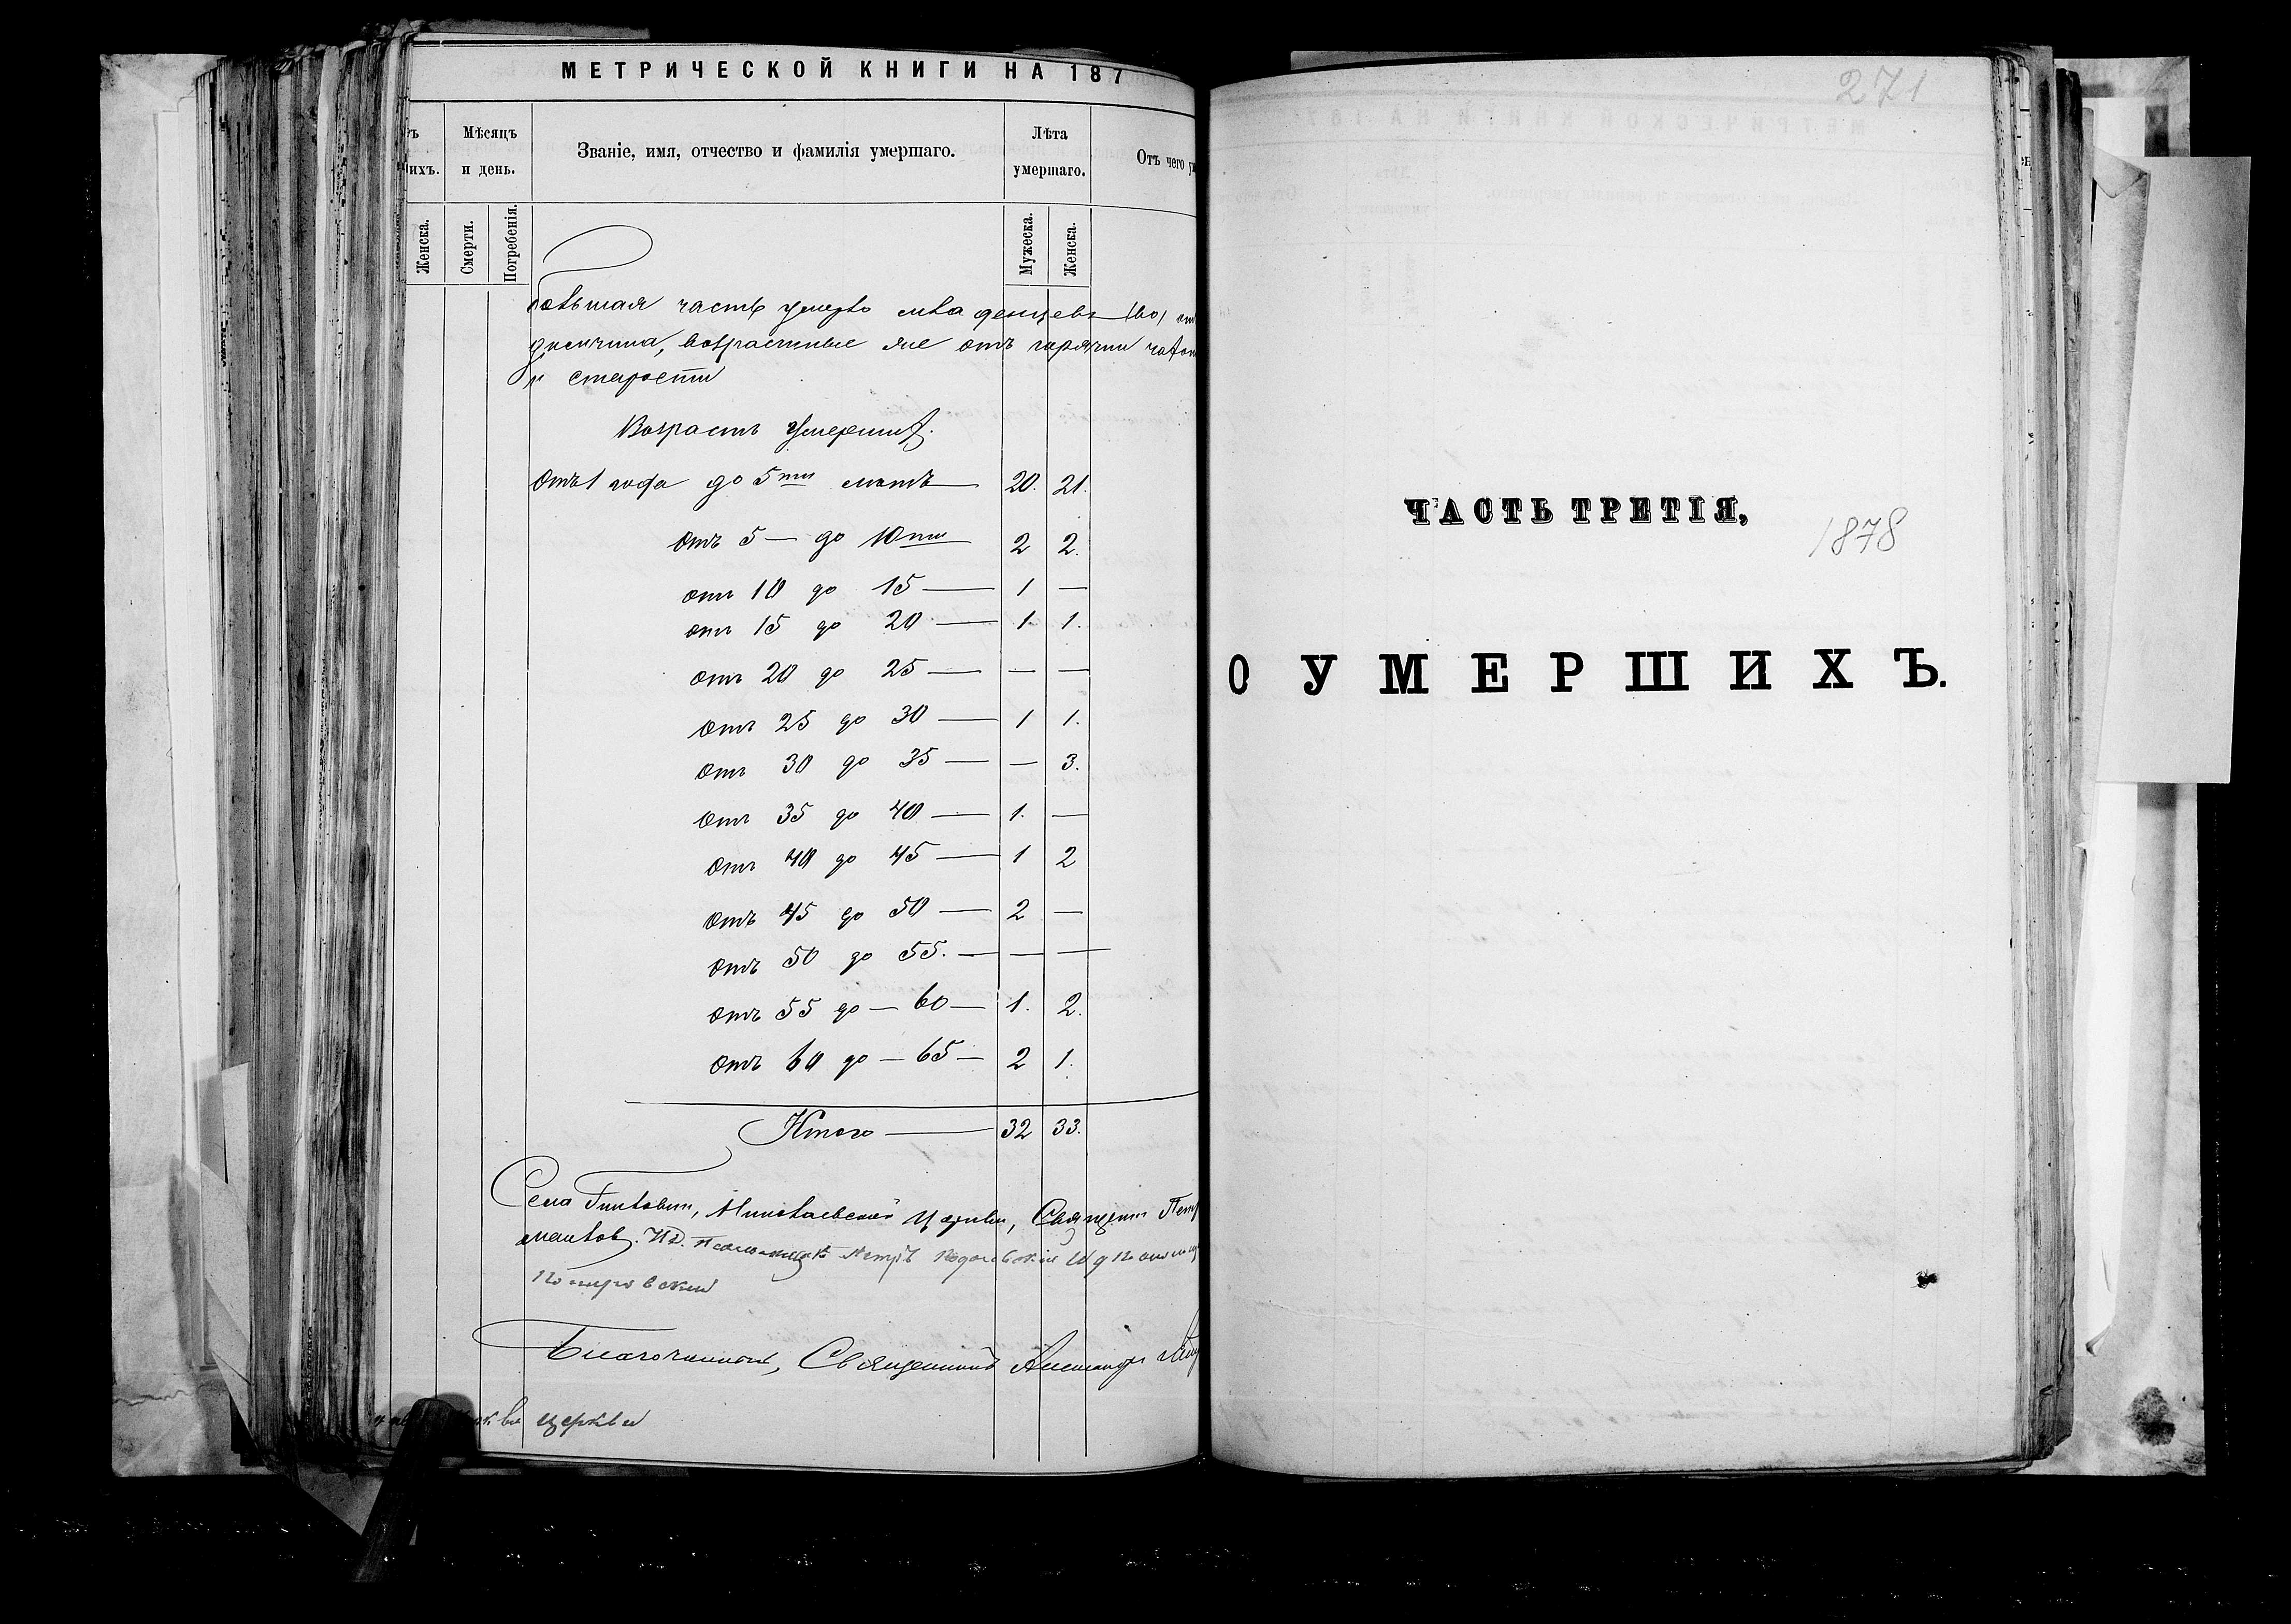 МЕТРИЧЕСКОЙ КНИГИ НА 187
ихъ.
Мѣсяцъ
и день.
Званіе, имя, отчество и фамилія умершаго.
Лѣта
умершаго.
Отъ чего
Женска.
Смерти.
Погребенія.
Мужеска.
Женска.
большая часть умерло младенцевъ
возрастные же отъ горячки
и старости
Возрастъ умершихъ.
Отъ 1 года до 5ти лѣтъ — 20. 21.
отъ 5 — до 10ти 2 2.
отъ 10 до 15 — 1 —
отъ 15 до 20 — 1. 1.
отъ 20 до 25 — — —
отъ 25 до 30 — 1 1.
отъ 30 до 35 — — 3.
отъ 35 до 40 — 1. —
отъ 40 до 45 — 1 2
отъ 45 до 50 — 2 —
отъ 50 до 55. — — —
отъ 55 до — 60 — 1. 2.
отъ 60 до — 65 — 2 1.
Итого — 32 33.
Села Николаевской Церкви, Священ
И.д. Псаломщика Петръ
Благочинный, Священникъ Александръ
церкви
271
ЧАСТЬ ТРЕТІЯ,
1878
О УМЕРШИХЪ.